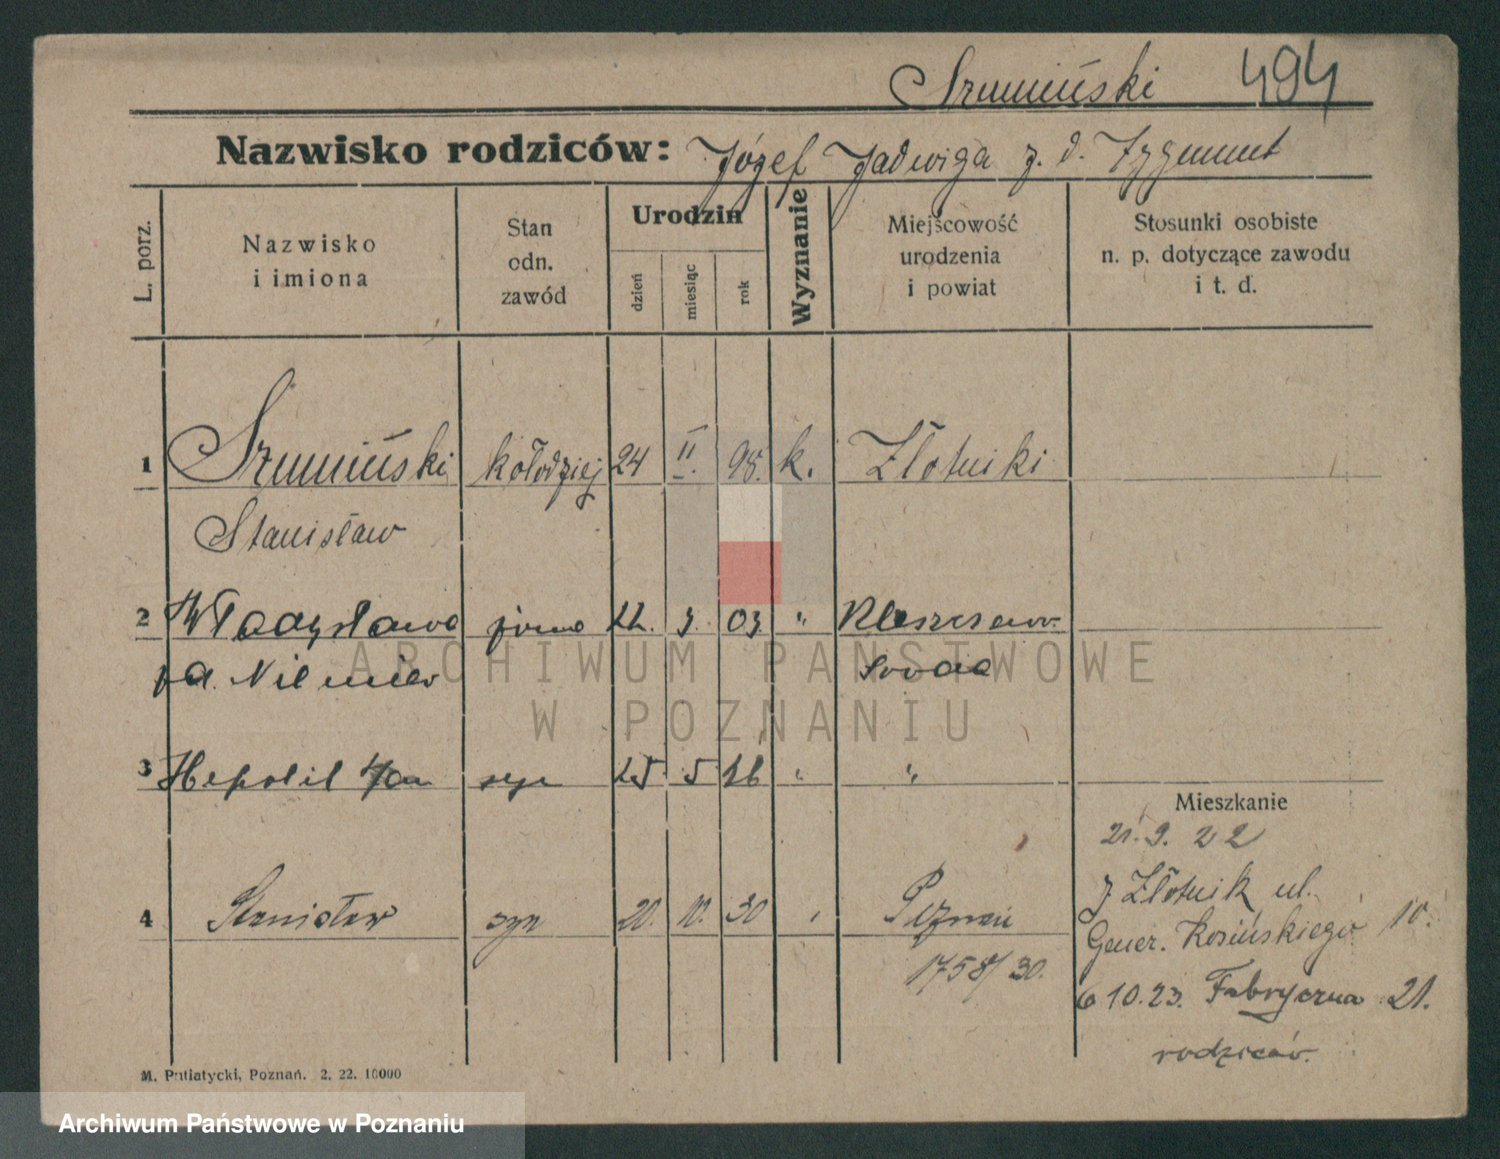 Szumiński 494
Nazwisko rodziców: Józef Jadwiga z. d. Zygmunt
L. porz.
Nazwisko
i imiona
Stan
odn.
zawód
Urodzin
dzień
miesiąc
rok
Wyznanie
Miejscowość
urodzenia
i powiat
Stosunki osobiste
n. p. dotyczące zawodu
i t. d.
1 Szumiński kołodziej 24 II. 98. k. Złotniki
Stanisław
2 Władysława żona 22. 3. 03 " Kleszczewo
Środa
3 syn 25 5 26 " "
Mieszkanie
21. 9. 22
z Złotnik ul.
4 Stanisław syn 20. 10. 30 Poznań
Gener. Kosińskiego 10.
1758/30.
6 10.23. Fabryczna 21.
rodziców.
M. Putiatycki, Poznań. 2. 22. 10000
ARCHIWUM PAŃSTWOWE
W POZNANIU
Archiwum Państwowe w Poznaniu